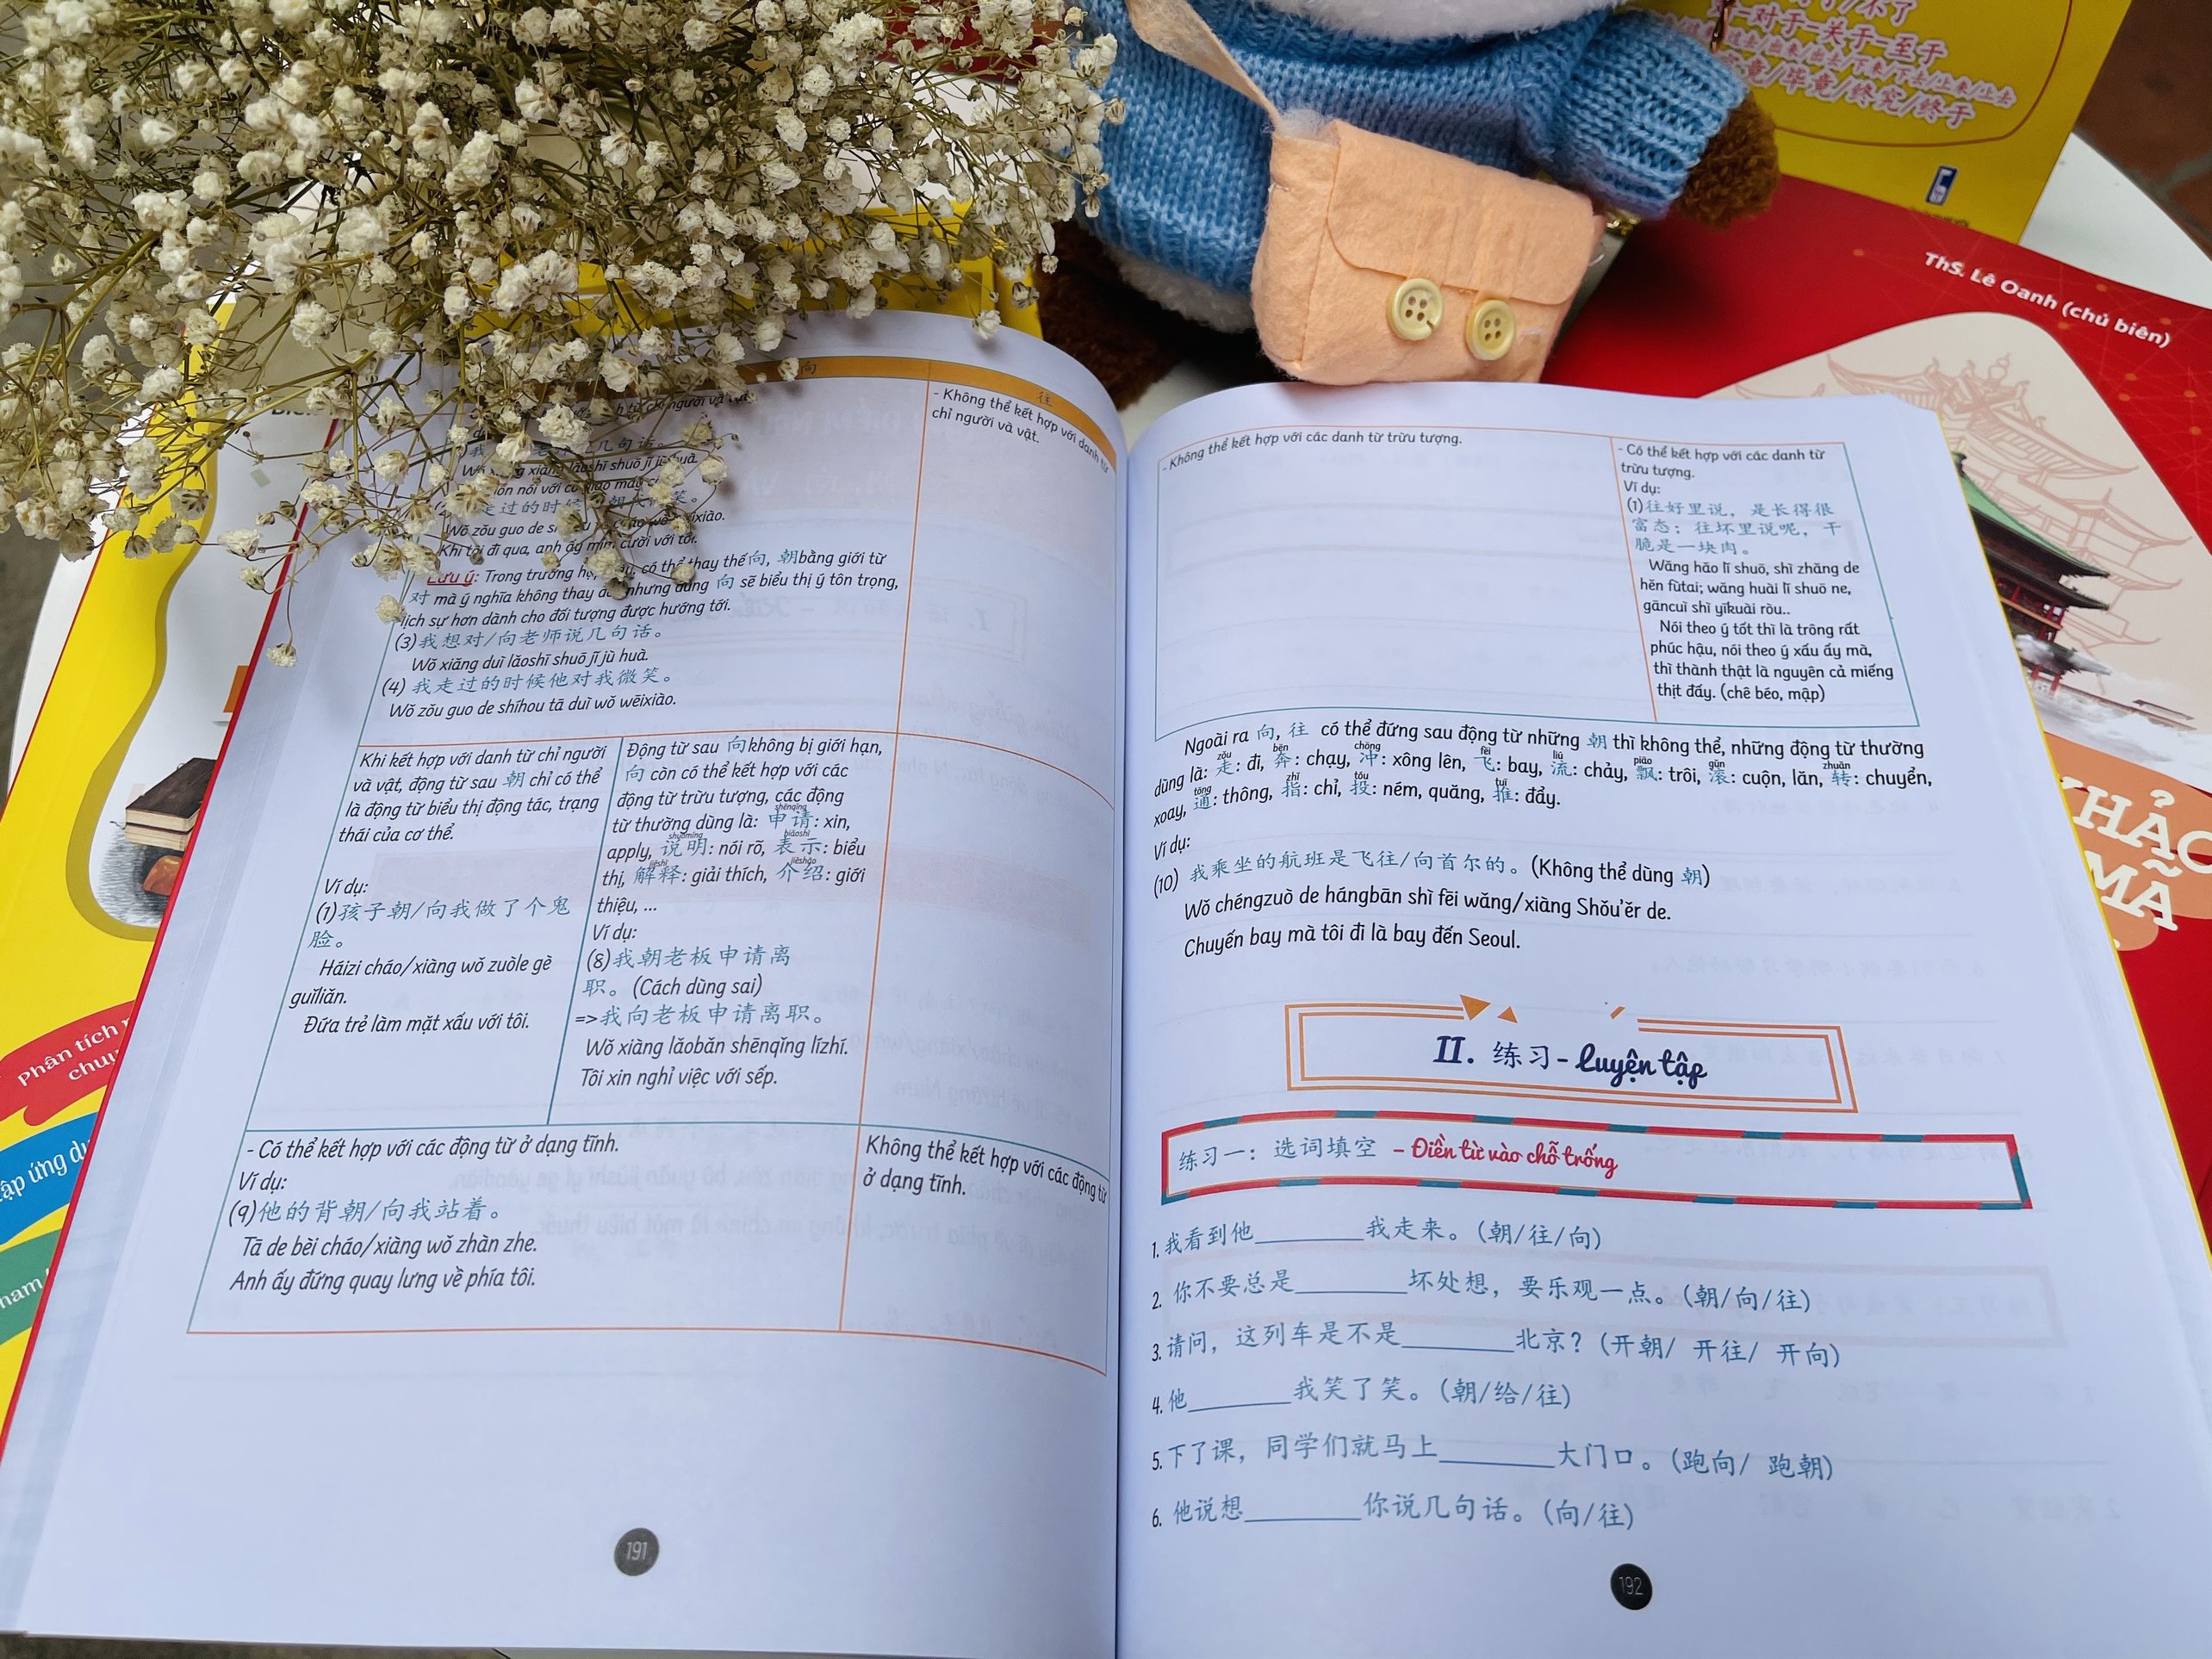 向
往
- Không thể kết hợp với danh từ
chỉ người và vật.
几句话。
xiàng lǎoshī shuō jǐ jù huà.
走过的时候
笑。
Wǒ zǒu guo de
wēixiào.
Khi tôi đi qua, anh ấy mỉm cười với tôi.
Lưu ý: Trong trường hợp có thể thay thế 向, 朝 bằng giới từ
对 mà ý nghĩa không thay nhưng dùng 向 sẽ biểu thị ý tôn trọng,
lịch sự hơn dành cho đối tượng được hướng tới.
(3)我想对/向老师说几句话。
Wǒ xiǎng duì lǎoshī shuō jǐ jù huà.
(4) 我走过的时候他对我微笑。
Wǒ zǒu guo de shíhou tā duì wǒ wēixiào.
Khi kết hợp với danh từ chỉ người
và vật, động từ sau 朝 chỉ có thể
là động từ biểu thị động tác, trạng
thái của cơ thể.
Ví dụ:
(1)孩子朝/向我做了个鬼
脸。
Háizi cháo/xiàng wǒ zuòle gè
guǐliǎn.
Đứa trẻ làm mặt xấu với tôi.
Động từ sau 向không bị giới hạn,
向 còn có thể kết hợp với các
động từ trừu tượng, các động
từ thường dùng là: 申请: xin,
shēnqǐng
apply, 说明: nói rõ, 表示: biểu
shuōmíng biǎoshì
thị, 解释: giải thích, 介绍: giới
jiěshì jièshào
thiệu, ...
Ví dụ:
(8)我朝老板申请离
职。(Cách dùng sai)
=>我向老板申请离职。
Wǒ xiàng lǎobǎn shēnqǐng lízhí.
Tôi xin nghỉ việc với sếp.
- Có thể kết hợp với các động từ ở dạng tĩnh.
Ví dụ:
(9)他的背朝/向我站着。
Tā de bèi cháo/xiàng wǒ zhàn zhe.
Anh ấy đứng quay lưng về phía tôi.
Không thể kết hợp với các động từ
ở dạng tĩnh.
191
- Không thể kết hợp với các danh từ trừu tượng.
- Có thể kết hợp với các danh từ
trừu tượng.
Ví dụ:
(1)往好里说，是长得很
富态；往坏里说呢，干
脆是一块肉。
Wǎng hǎo lǐ shuō, shì zhǎng de
hěn fùtai; wǎng huài lǐ shuō ne,
gāncuì shì yīkuài ròu..
Nói theo ý tốt thì là trông rất
phúc hậu, nói theo ý xấu ấy mà,
thì thành thật là nguyên cả miếng
thịt đấy. (chê béo, mập)
Ngoài ra 向, 往 có thể đứng sau động từ những 朝 thì không thể, những động từ thường
zǒu bēn chōng fēi liú piāo gǔn zhuǎn
dùng là: 走: đi, 奔: chạy, 冲: xông lên, 飞: bay, 流: chảy, 飘: trôi, 滚: cuộn, lăn, 转: chuyển,
tōng zhǐ tóu tuī
xoay, 通: thông, 指: chỉ, 投: ném, quăng, 推: đẩy.
Ví dụ:
(10) 我乘坐的航班是飞往/向首尔的。(Không thể dùng 朝)
Wǒ chéngzuò de hángbān shì fēi wǎng/xiàng Shǒu'ěr de.
Chuyến bay mà tôi đi là bay đến Seoul.
II. 练习- Luyện tập
练习一：选词填空 - Điền từ vào chỗ trống
1.我看到他________我走来。(朝/往/向)
2. 你不要总是________坏处想，要乐观一点。(朝/向/往)
3.请问，这列车是不是________北京？(开朝/ 开往/ 开向)
4.他________我笑了笑。(朝/给/往)
5.下了课，同学们就马上________大门口。(跑向/ 跑朝)
6. 他说想________你说几句话。(向/往)
192
对于-关于-至于
竟/毕竟/终究/终于
ThS. Lê Oanh (chủ biên)
KHẢO
MÃ
Phân tích
tập ứng dụ
nam